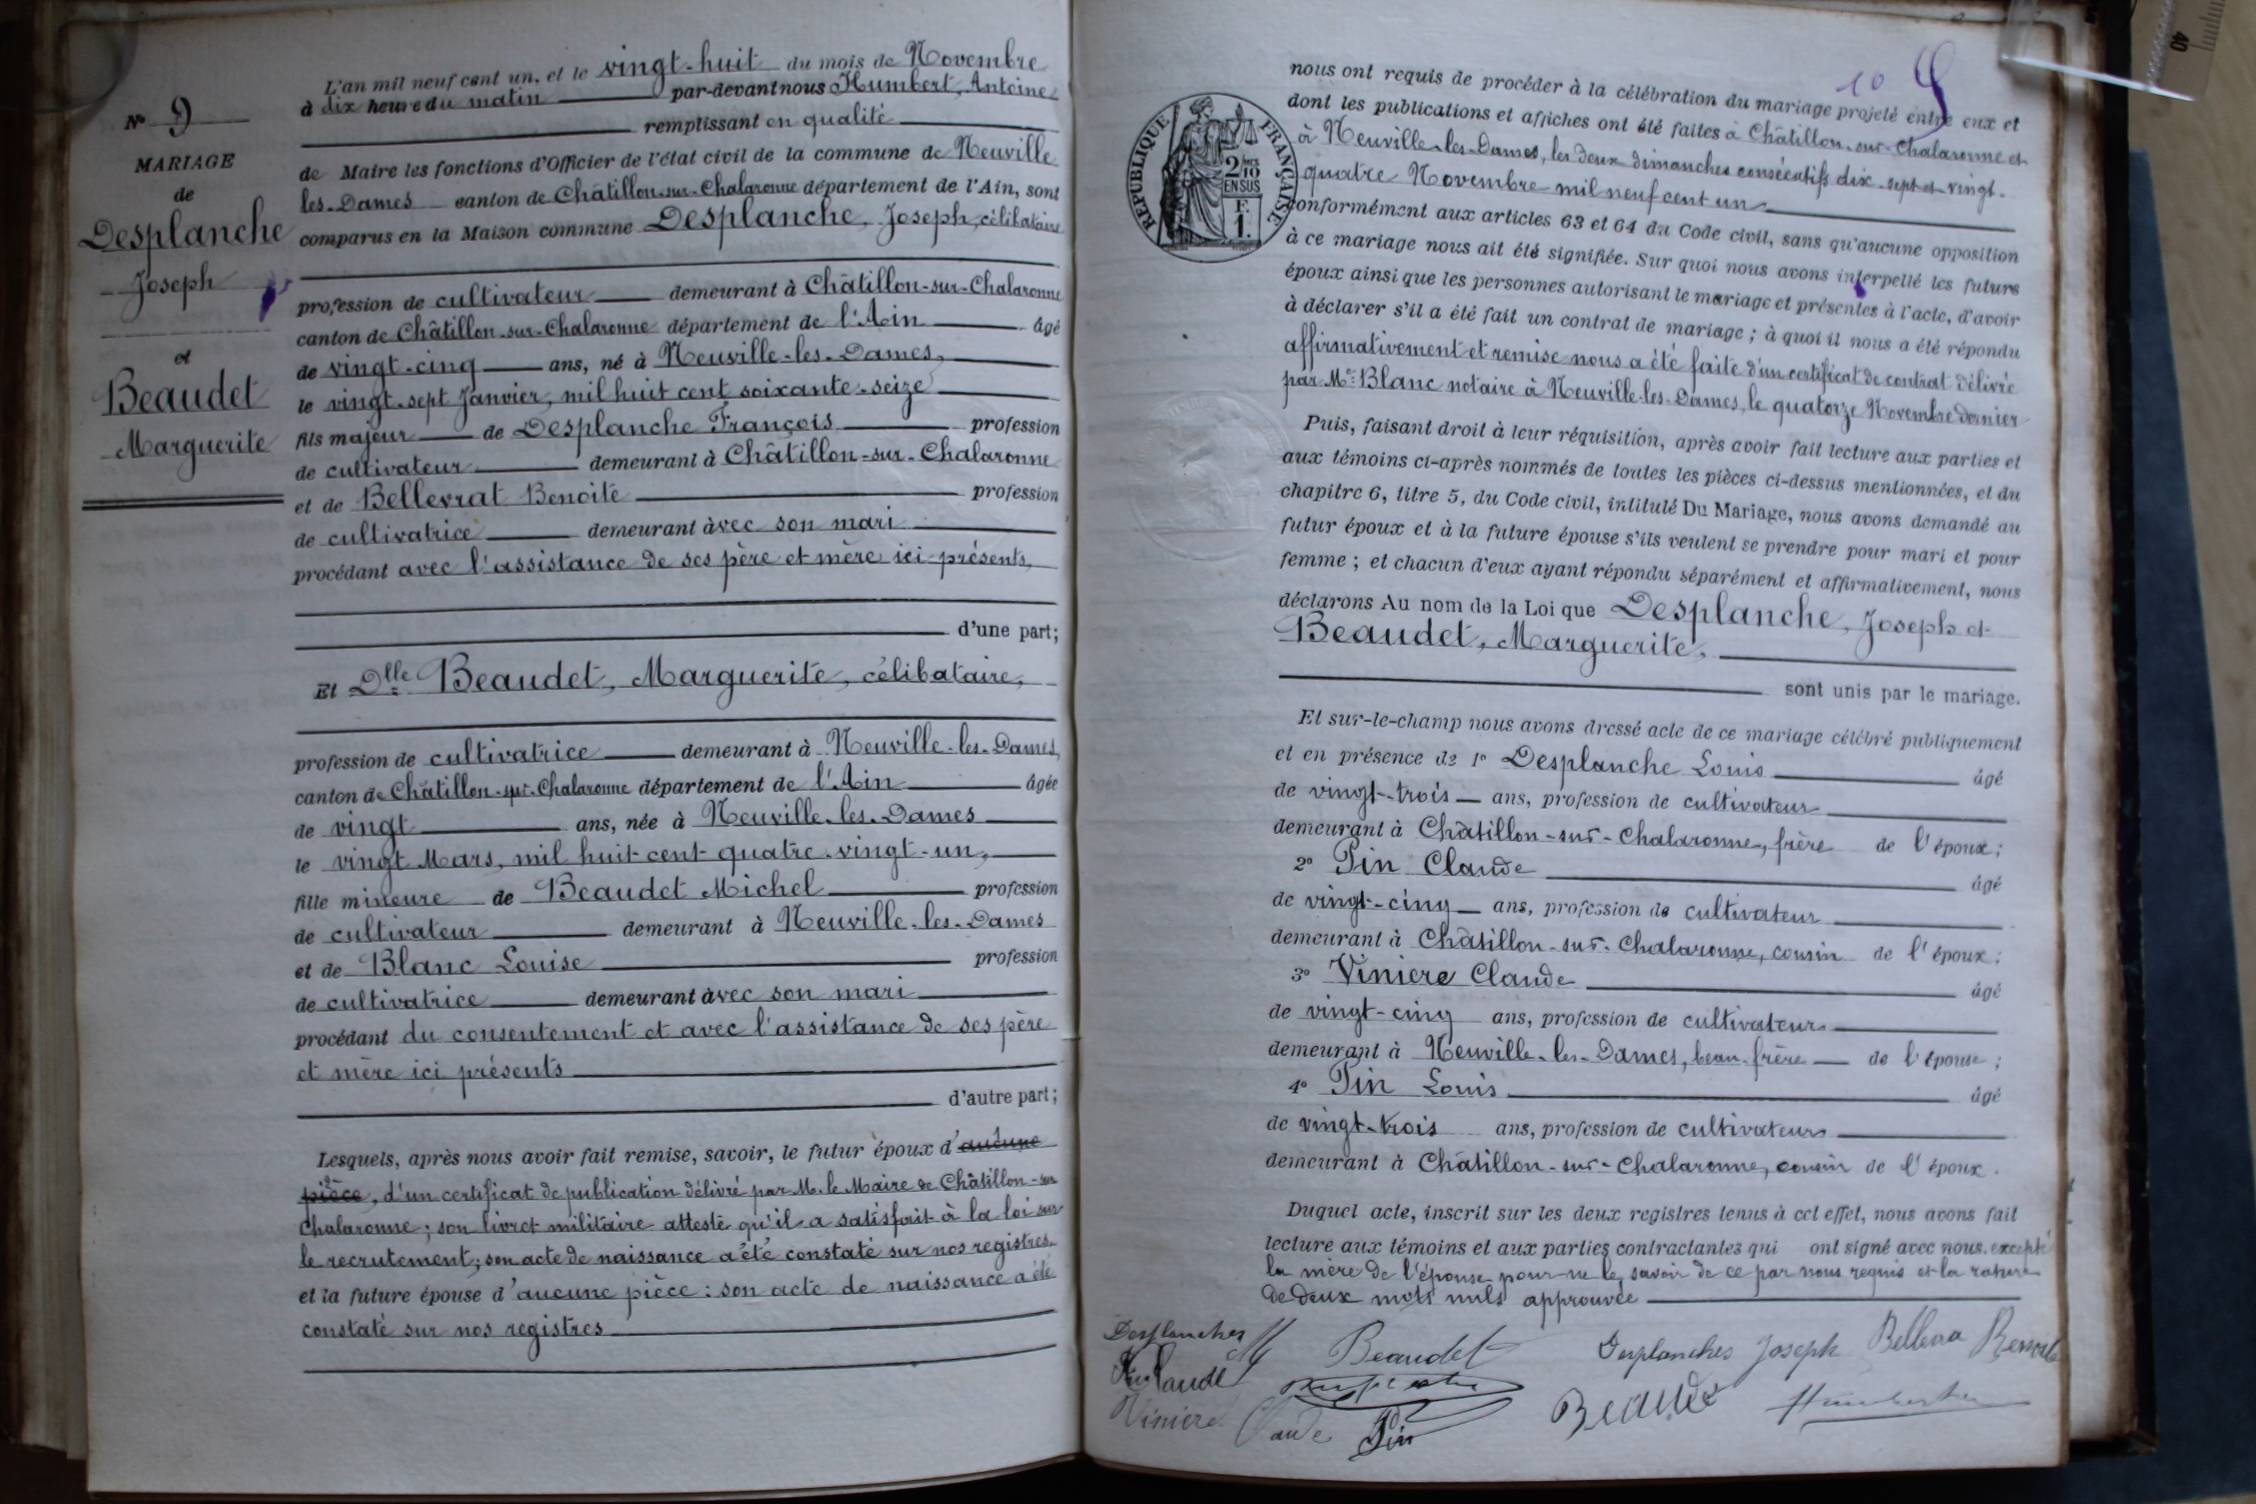 N° 9
MARIAGE
de
Desplanche
Joseph
et
Beaudet
Marguerite
L'an mil neuf cent un, et le vingt-huit du mois de Novembre
à dix heure du matin par-devant nous Humbert, Antoine
remplissant en qualité
de Maire les fonctions d'Officier de l'état civil de la commune de Neuville
les-Dames canton de Châtillon-sur-Chalaronne département de l'Ain, sont
comparus en la Maison commune Desplanche, Joseph, célibataire
profession de cultivateur demeurant à Châtillon-sur-Chalaronne
canton de Châtillon-sur-Chalaronne département de l'Ain âgé
de vingt-cinq ans, né à Neuville-les-Dames,
le vingt-sept Janvier, mil huit cent soixante-seize
fils majeur de Desplanche François profession
de cultivateur demeurant à Châtillon-sur-Chalaronne
et de Bellevrat Benoite profession
de cultivatrice demeurant àvec son mari
procédant avec l'assistance de ses père et mère ici présents,
d'une part;
Et Dlle Beaudet, Marguerite, célibataire,
profession de cultivatrice demeurant à Neuville-les-Dames,
canton de Châtillon-sur-Chalaronne département de l'Ain âgée
de vingt ans, née à Neuville-les-Dames
le vingt Mars, mil huit cent quatre-vingt-un,
fille mineure de Beaudet Michel profession
de cultivateur demeurant à Neuville-les-Dames
et de Blanc Louise profession
de cultivatrice demeurant àvec son mari
procédant du consentement et avec l'assistance de ses père
et mère ici présents
d'autre part;
Lesquels, après nous avoir fait remise, savoir, le futur époux d'aucune
pièce, d'un certificat de publication délivré par M. le Maire de Châtillon-sur
Chalaronne; son livret militaire atteste qu'il a satisfait à la loi sur
le recrutement; son acte de naissance a été constaté sur nos registres.
et la future épouse d'aucune pièce: son acte de naissance a été
constaté sur nos registres
10
RÉPUBLIQUE FRANÇAISE
2/10
EN SUS
F.
1.
nous ont requis de procéder à la célébration du mariage projeté entre eux et
dont les publications et affiches ont été faites à Châtillon-sur-Chalaronne et
à Neuville-les-Dames, les deux dimanches consécutifs dix-sept et vingt-
quatre Novembre mil neuf cent un
conformément aux articles 63 et 64 du Code civil, sans qu'aucune opposition
à ce mariage nous ait été signifiée. Sur quoi nous avons interpellé les futurs
époux ainsi que les personnes autorisant le mariage et présentes à l'acte, d'avoir
à déclarer s'il a été fait un contrat de mariage; à quoi il nous a été répondu
affirmativement et remise nous a été faite d'un certificat de contrat délivré
par Me Blanc notaire à Neuville-les-Dames, le quatorze Novembre dernier
Puis, faisant droit à leur réquisition, après avoir fait lecture aux parties et
aux témoins ci-après nommés de toutes les pièces ci-dessus mentionnées, et du
chapitre 6, titre 5, du Code civil, intitulé Du Mariage, nous avons demandé au
futur époux et à la future épouse s'ils veulent se prendre pour mari et pour
femme; et chacun d'eux ayant répondu séparément et affirmativement, nous
déclarons Au nom de la Loi que Desplanche, Joseph et
Beaudet, Marguerite,
sont unis par le mariage.
Et sur-le-champ nous avons dressé acte de ce mariage célébré publiquement
et en présence de 1° Desplanche Louis âgé
de vingt-trois ans, profession de cultivateur
demeurant à Châtillon-sur-Chalaronne, frère de l'époux;
2° Pin Claude âgé
de vingt-cinq ans, profession de cultivateur
demeurant à Châtillon-sur-Chalaronne, cousin de l'époux;
3° Viniere Claude âgé
de vingt-cinq ans, profession de cultivateur
demeurant à Neuville-les-Dames, beau-frère de l'épouse;
4° Pin Louis âgé
de vingt-trois ans, profession de cultivateur
demeurant à Châtillon-sur-Chalaronne, cousin de l'époux.
Duquel acte, inscrit sur les deux registres tenus à cet effet, nous avons fait
lecture aux témoins et aux parties contractantes qui ont signé avec nous. excepté
la mère de l'épouse pour ne le savoir de ce par nous requis et la rature
de deux mots nuls approuvée
Desplanches Beaudet Desplanches Joseph Bellevra Benoite
Claude
Viniere Claude Pin Beaudet Humbert